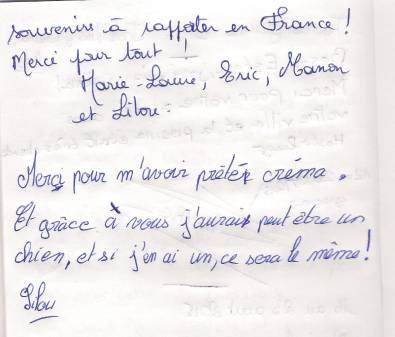 souvenirs à rapporter en France !
Merci pour tout !
Marie-Laure, Eric, Manon
et Lilou.
Merci pour m'avoir prêter créma.
Et grâce à vous j'aurais peut être un
chien, et si j'en ai un, ce sera le même !
Lilou